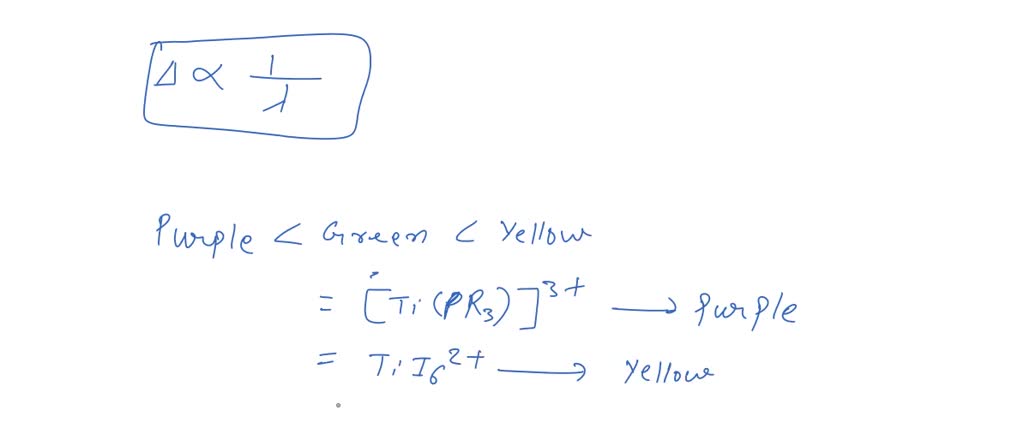 Δ ∝ 1/λ
Purple < Green < Yellow
= [Ti(PR₃)]³⁺ → Purple
= TiI₆²⁺ → Yellow